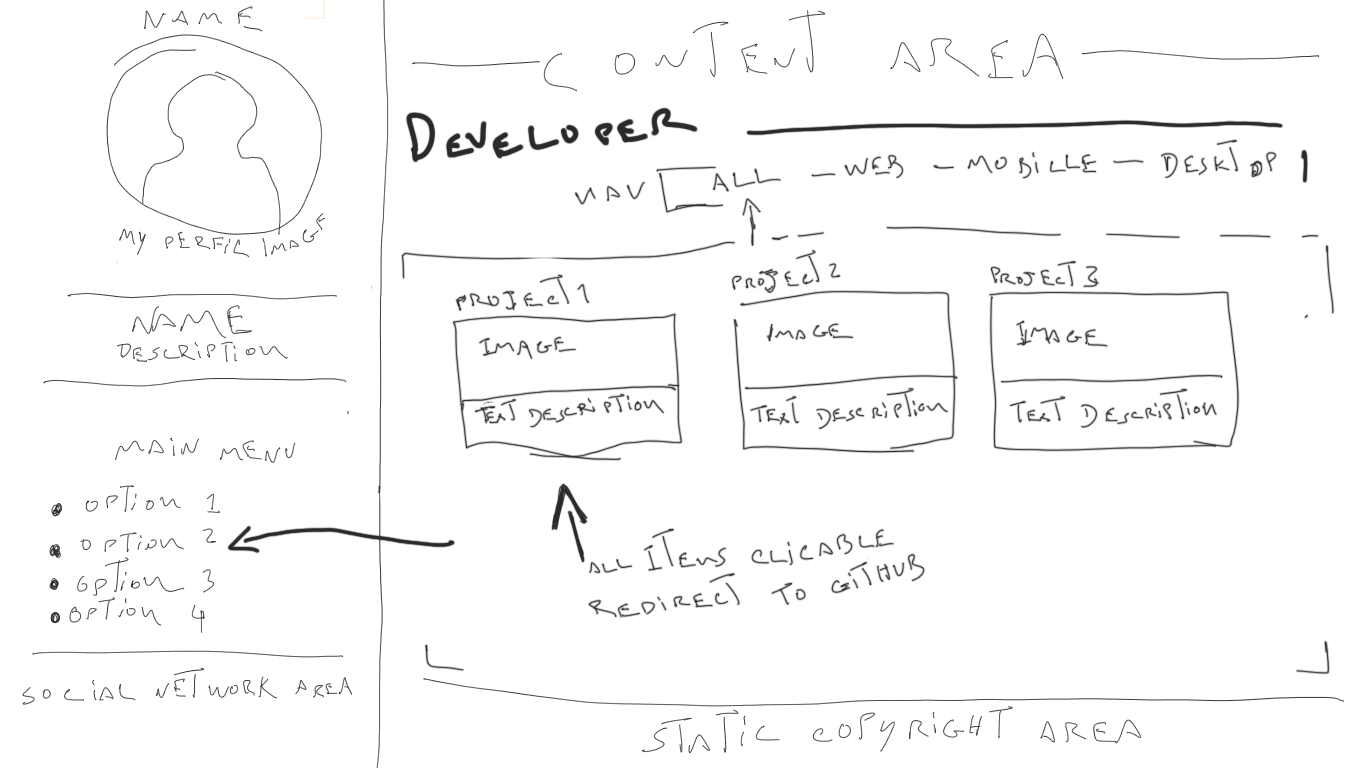 NAME
MY PERFIL IMAGE
NAME
DESCRIPTION
MAIN MENU
OPTION 1
OPTION 2
OPTION 3
OPTION 4
SOCIAL NETWORK AREA
CONTENT AREA
DEVELOPER
NAV ALL - WEB - MOBILLE - DESKTOP
PROJECT 1
IMAGE
TEXT DESCRIPTION
PROJECT 2
IMAGE
TEXT DESCRIPTION
PROJECT 3
IMAGE
TEXT DESCRIPTION
ALL ITENS CLICABLE
REDIRECT TO GITHUB
STATIC COPYRIGHT AREA